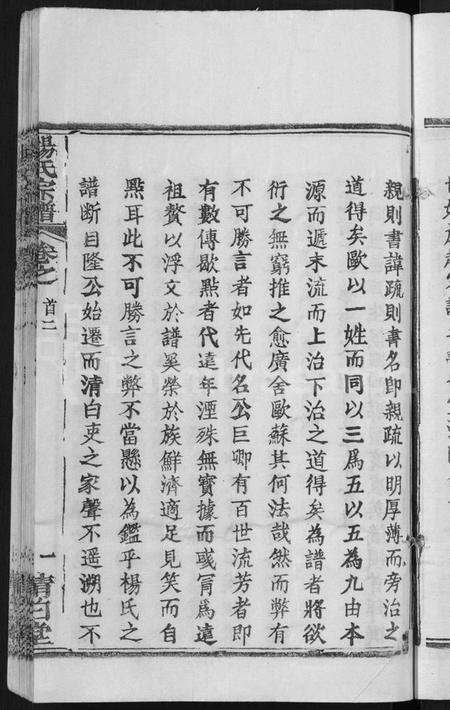 親則書諱疏則書名即親疏以明厚薄而旁治之
道得矣歐以一姓而同以三為五以五為九由本
源而遞末流而上治下治之道得矣為譜者將欲
衍之無窮推之愈廣舍歐蘇其何法哉然而弊有
不可勝言者如先代名公巨卿有百世流芳者即
有數傳歇㸃者代遠年湮殊無實據而或冐為遠
祖贅以浮文於譜奚榮於族鮮濟適足見笑而自
㸃耳此不可勝言之弊不當懸以為鑑乎楊氏之
譜断自隆公始遷而清白吏之家聲不遥溯也不
楊氏宗譜
卷之
首二
一
清白堂